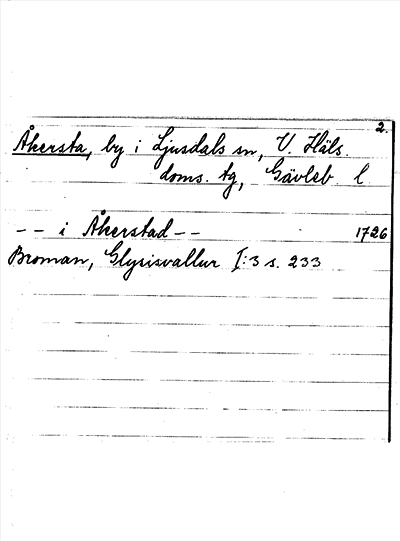 2.
Åkersta, by i Ljusdals sn, V. Häls.
doms. tg, Gävleb. l
-- i Åkerstad -- 1726
Broman, Glysisvallur I:3 s. 233